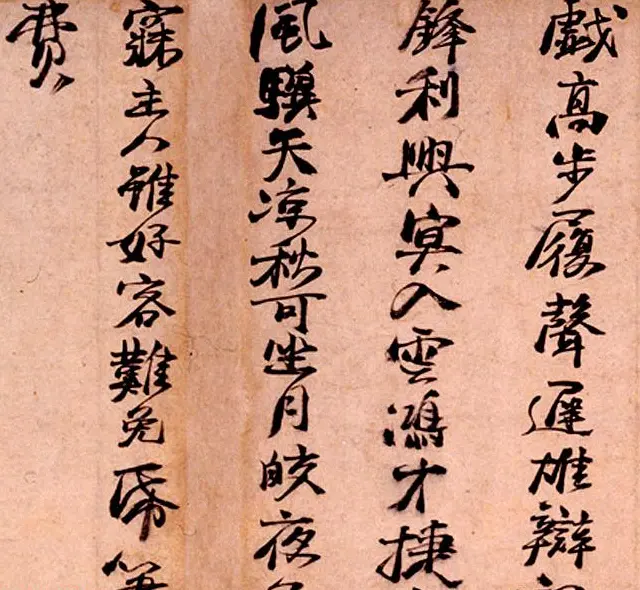 戲高步履聲遲雄辯
鋒利興寘入雲鴻才捷
風驥天凉秋可坐月皎夜
寐主人雖好客難免昏
費